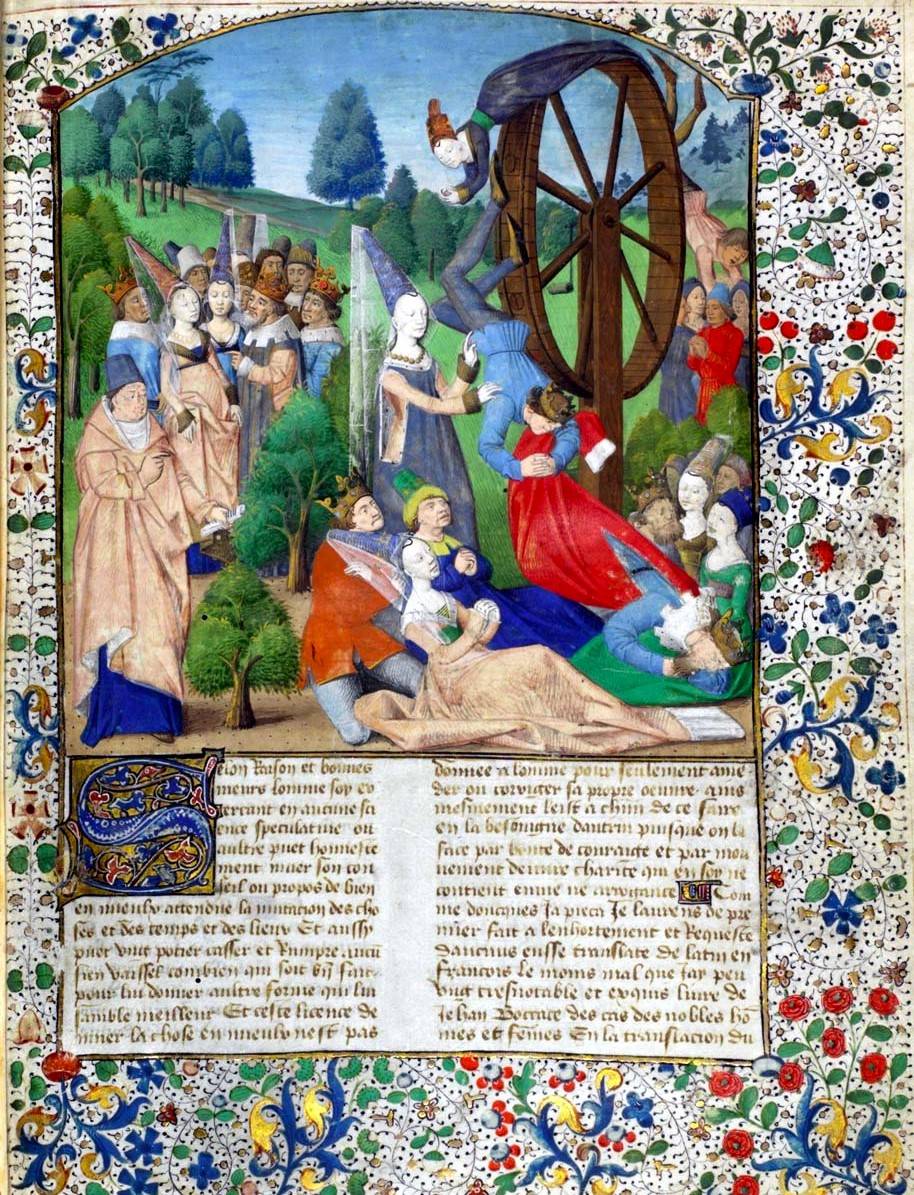 Selon Raison et bonnes
meurs lomme soy ex
ercant en aucune sci
ence speculatiue ou
aultre puet honneste
ment muer son con
seil ou propos de bien
en mieulx attendue la mutacion des cho
ses et des temps et des lieux Et aussy
puet vng potier casser et Rumpre aucū
sien vaissel combien quil soit bn̄ fait
pour lui donner aultre forme qui lui
samble meilleur Et ceste licence de
muer la chose en mieulx nest pas
donnee a lomme pour seulement ame
der ou corrigier sa propre oeuure ains
mesmement leist a chūn de ce faire
en la besoingne dautrui puisque on le
face par bonte de couraige et par mou
uement de vraie charite qui en soy ne
contient enuie ne arrogance Com
me doncques Ja pieca Je laurens de pre
mier fait a lenhortement et Requeste
daucuns eusse translate de latin en
francois le moins mal que Jay peu
vng tresnotable et exquis liure de
Jehan Boccace des cas des nobles hō
mes et fem̄es En la translacion du